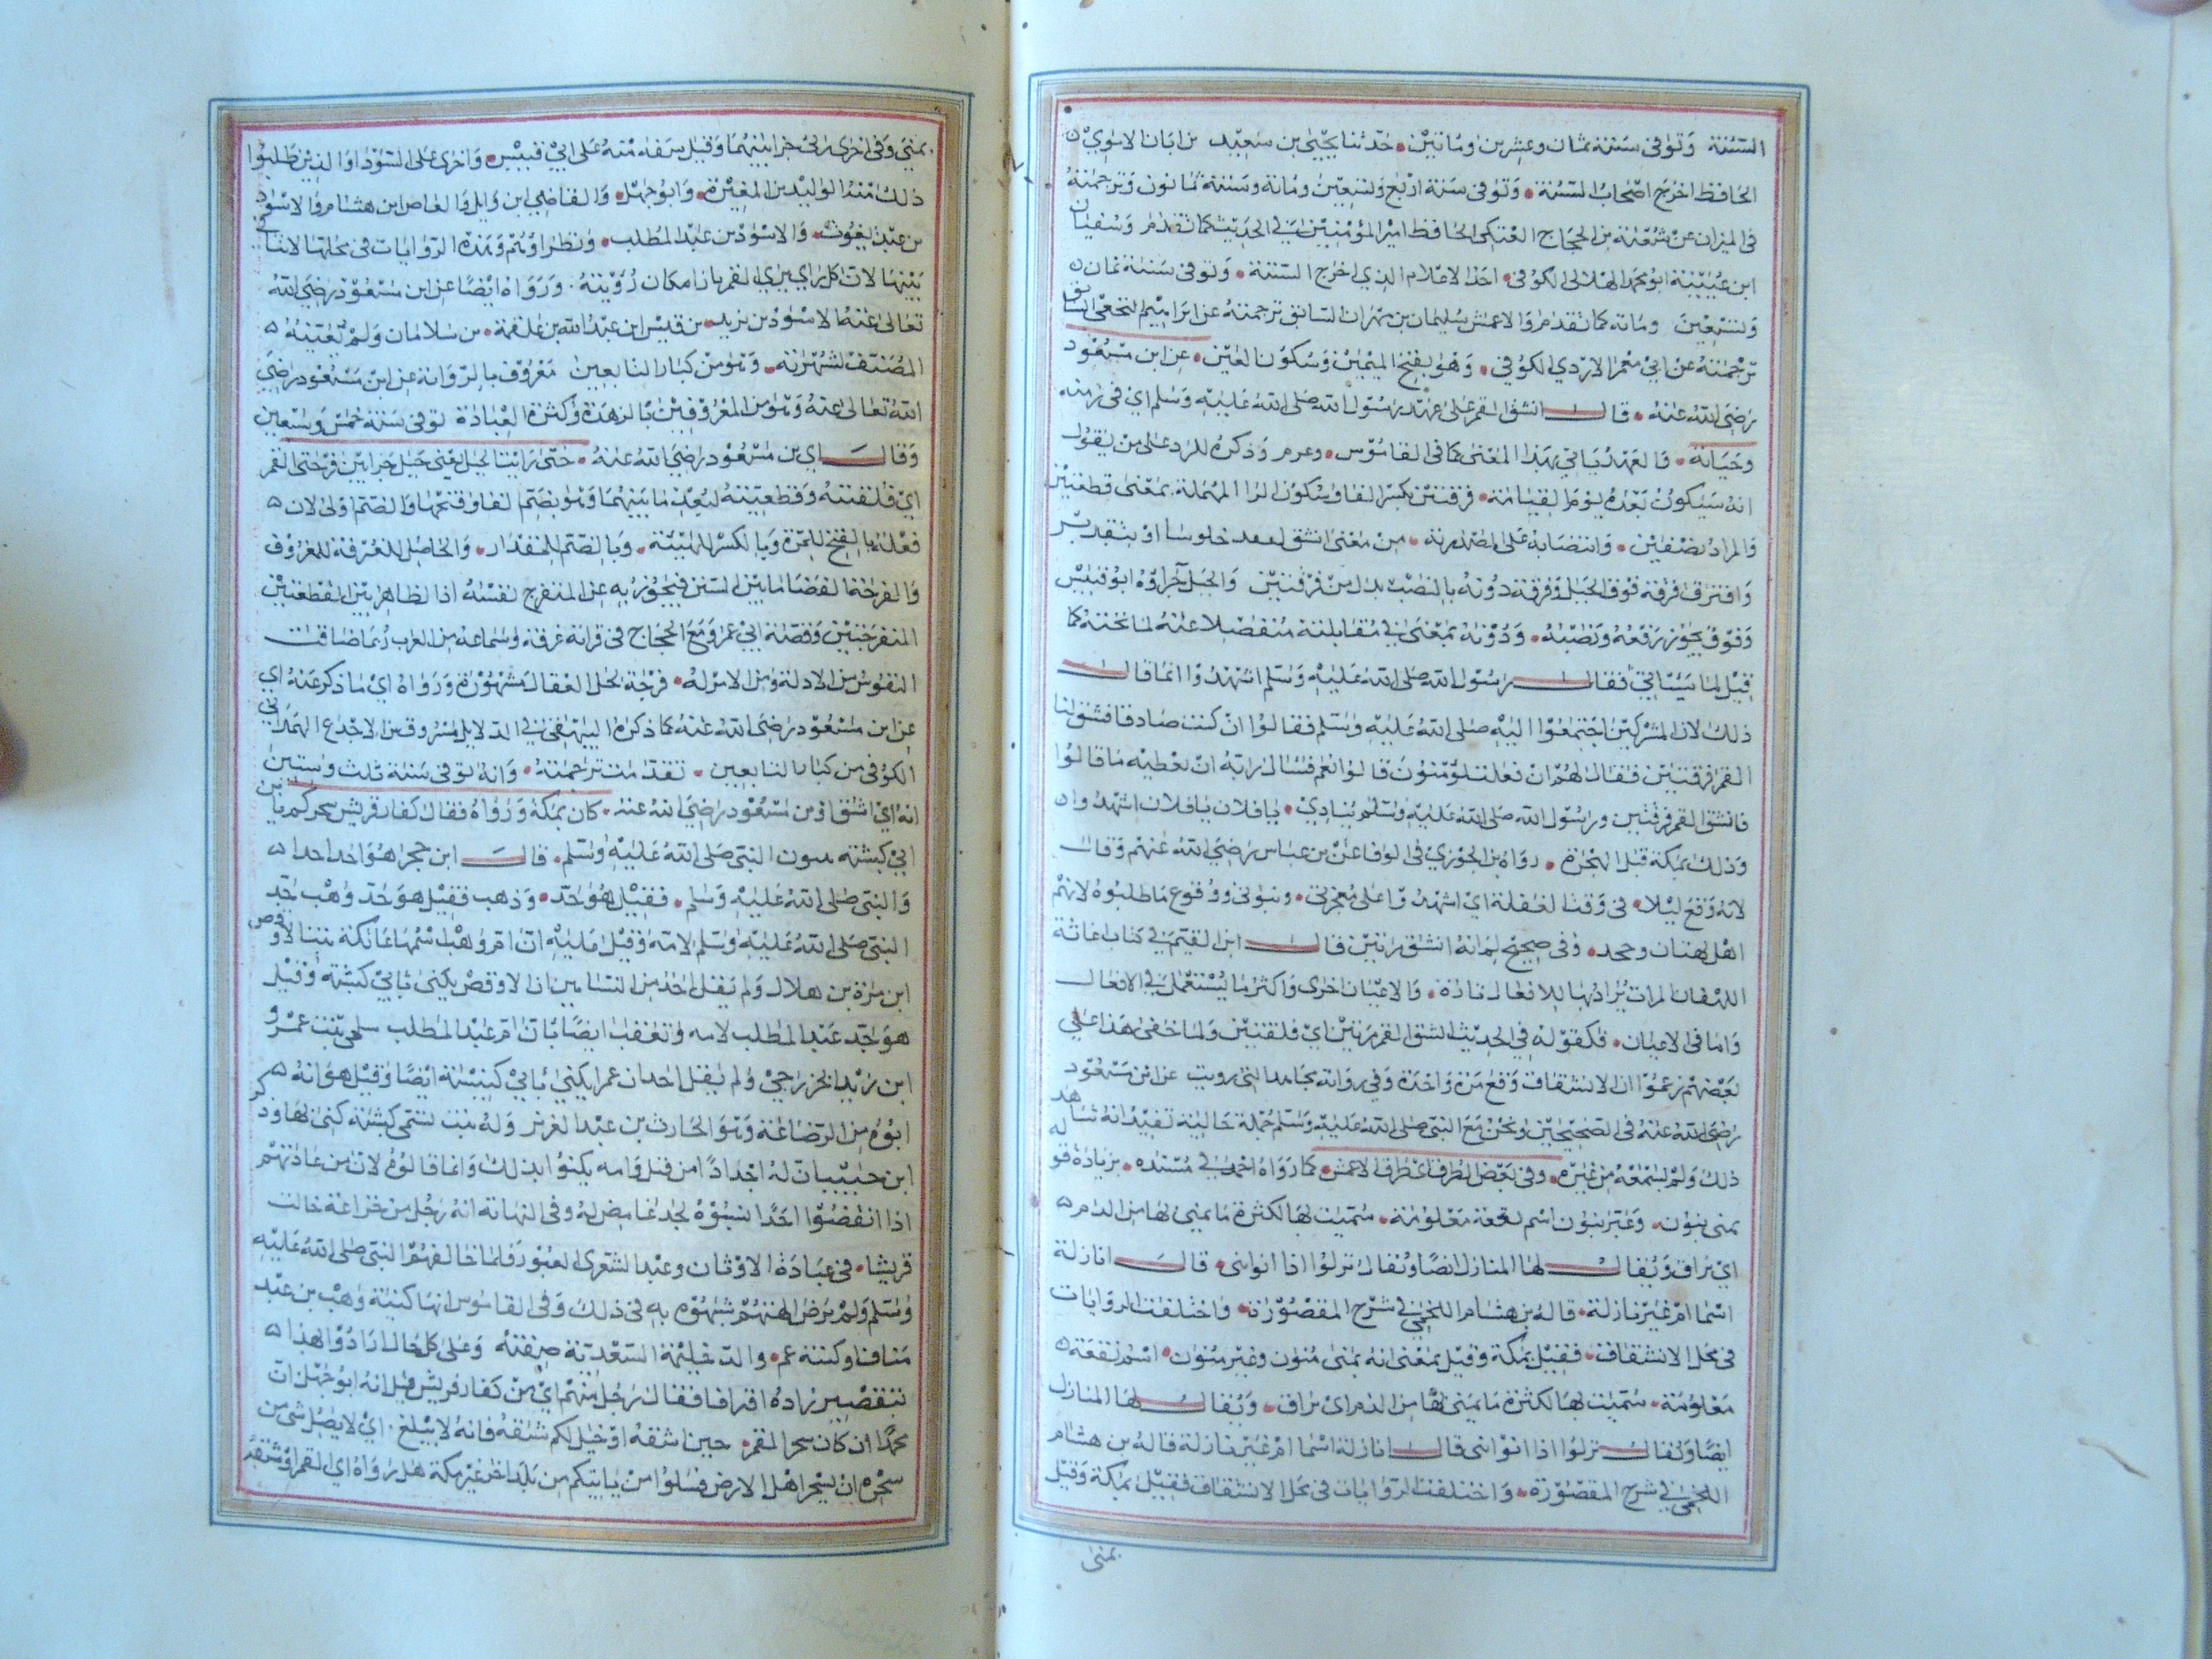 الستنة وتوفى سنة ثمان وعشرين ومائتين حدثنا يحيى بن سعيد بن ابان الاموي
الحافظ اخرج اصحاب الستنة وتوفى سنة اربع وتسعين ومائة وسنة ثمانون وترجمته
فى الميزان عن شعبة بن الحجاج العتكى الحافظ امير المؤمنين في الحديث كما تقدم وسفيان
ابن عيينة ابو محمد الهلالى الكوفى احد الاعلام الذى اخرج الستنة وتوفى سنة ثمان
وتسعين ومائة كما تقدم والاعمش سليمان بن مهران السابق ترجمته عن ابراهيم النخعي السابق
ترجمته عن ابي معمر الازدي الكوفي وهو بفتح الميمين وسكون العين عن ابن مسعود
رضى الله عنه قال انشق القمر على عهد رسول الله صلى الله عليه وسلم اي فى زمنه
وحياته والعهد ياتي بهذا المعنى كما فى القاموس وذكره للرد على من يقول
انه سيكون بعده يوم القيامة فرقتين بكسر الفا وسكون الرا المهملة بمعنى قطعتين
والمراد نصفين وانتصابه على المصدرية من معنى انشق او بتقدير
وافترق فرقة فوق الجبل وفرقة دونه بالنصب بدل من فرقتين والجبل حرا او ابو قبيس
وفوق يجوز رفعه ونصبه ودونه بمعنى في مقابلته منفصلا عنه لما تحته كما
قيل لما سياتي فقال رسول الله صلى الله عليه وسلم اشهدوا انما قال
ذلك لان المشركين اجتمعوا اليه صلى الله عليه وسلم فقالوا ان كنت صادقا فشق لنا
القمر فرقتين فقال لهم ان فعلت تؤمنون قالوا نعم فسال ربه ان يعطيه ما قالوا
فانشق القمر فرقتين ورسول الله صلى الله عليه وسلم ينادي يا فلان يا فلان اشهدوا
وذلك بمكة قبل الهجرة رواه بن الجوزي فى الوفا عن بن عباس رضى الله عنهم وقال
لانه وقع ليلا فى وقت الغفلة اي اشهدوا على معجزتى ونبوتى ووقوع ما طلبوه لانهم
اهل بهتان وجحد وفى صحيح انه انشق مرتين قال ابن القيم في كتاب اغاثة
اللهفان المرات يراد بها الافعال تارة والاعيان اخرى واكثر ما يستعمل في الافعال
واما فى الاعيان فكقوله في الحديث انشق القمر مرتين اي فلقتين ولما خفى هذا على
بعضهم زعموا ان الانشقاق وقع مرة واحدة وفي رواية مجاهد التى رويت عن ابن مسعود
رضى الله عنه فى الصحيحين ونحن مع النبى صلى الله عليه وسلم جملة حالية تفيد انه شاهد
ذلك ولم يسمعه من غيره وفى بعض طرق الاعمش كما رواه احمد في مسنده بزيادة قوله
بمنى بنون وغير بنون اسم بقعة معلومة سميت بها لكثرة ما يمنى بها من الدم
اي يراق ويقال لها المنازل ايضا ويقال نزلوا اذا اتوا منى قال انازلة
اسما ام غير نازلة قاله بن هشام اللخمي في شرح المقصورة واختلفت الروايات
فى محل الانشقاق فقيل بمكة وقيل بمعنى انه بمنى منون وغير منون اسم بقعة
معلومة سميت بها لكثرة ما يمنى بها من الدم اى يراق ويقال لها المنازل
ايضا ويقال نزلوا اذا اتوا منى قال انازلة اسما ام غير نازلة قاله بن هشام
اللخمي في شرح المقصورة واختلفت الروايات فى محل الانشقاق فقيل بمكة وقيل
بمنى
بمنى وفى اخرى وقيل شقة منه على ابي قبيس واخرى على السويدا والذين طلبوا
ذلك منه الوليد بن المغيرة وابو جهل والعاصي ابن وايل والعاص ابن هشام والاسود
بن عبد يغوث والاسود بن عبد المطلب ونظراؤهم وهذه الروايات فى محلها لا تنافى
بينها لان كل راي يري القمر بازا مكان رؤيته ورواه ايضا عن ابن مسعود رضى الله
تعالى عنه الاسود بن يزيد بن قيس ابن عبد الله بن علقمة بن سلامان ولم يعينه
المصنف لشهرته وهو من كبار التابعين معروف بالرواية عن ابن مسعود رضى
الله تعالى عنه وهو من المعروفين بالزهد وكثرة العبادة توفى سنة خمس وسبعين
وقال اي بن مسعود رضى الله عنه حتى رايت الجبل يعني جبل حرا بين فرجتى القمر
اي فلقتيه وقطعتيه لبعد ما بينهما وهو بضم الفا وفتحها والضم اولى لان
فعلة بالفتح للمرة وبالكسر للهيئة وبالضم للمقدار والحاصل كالغرفة للمغروف
والفرجة الفضا ما بين الشيئين فيجوز به عن المنفرج نفسه اذ الظاهر بين القطعتين
المنفرجتين وقصة ابي عمرو مع الحجاج فى قراته غرفة وسماعه من العرب ربما ضاقت
النفوس من الامر له فرجة كحل العقال مشهورة ورواه اي ما ذكر عنه اي
عن ابن مسعود رضى الله عنه كما ذكره البيهقى في الدلايل مسروق بن الاجدع الهمداني
الكوفى من كبار التابعين تقدمت ترجمته وانه توفى سنة ثلث وستين
انه اي انشقاق بن مسعود رضى الله عنه كان بمكة ورواه فقال كفار قريش سحركم بن
ابي كبشة يعنون النبى صلى الله عليه وسلم قال ابن حجر هو احد اجداد
النبى صلى الله عليه وسلم فقيل هو جد وهب فقيل هو جد وهب جد
النبى صلى الله عليه وسلم لامه وقيل عليه ان ام وهب اسمها عاتكة بنت الاوقص
ابن مرة بن هلال ولم يقل احد من النسابين ان الاوقص يكنى بابي كبشة وقيل
هو جد عبد المطلب لامه وتعقب ايضا بان ام عبد المطلب سلمى بنت عمرو
ابن زيد الخزرجي ولم يقل احد ان عمر يكنى بابي كبشة ايضا وقيل هو انه
ابوه من الرضاعة وهو الحارث بن عبد العزى وله بنت تسمى كبشة كنى بها وذكر
ابن حبيب ان له اجدادا من قبل ابيه وامه يكنوا بذلك وانما قالوه لان من عادتهم
اذا انتقصوا احدا نسبوه لجد غامض له وفى النهاية انه رجل من خزاعة خالف
قريشا فى عبادة الاوثان وعبد الشعرى العبور فلما خالفهم النبى صلى الله عليه
وسلم ولم يرض الهتهم شبهوه به فى ذلك وفى القاموس انها كنية وهب بن عبد
مناف او كنية زوج حليمة السعدية وعلى كل حال ارادوا بهذا
تنقيص فقال رجل منهم اي من كفار قريش قيل انه ابو جهل ان
محمدا ان كان سحر القمر حين شقه او خيل لكم شقه فانه لا يبلغ اي لا يصل شى من
سحره ان يسحر اهل الارض فسلوا من ياتيكم من بلد اخر غير مكة هل راوا هذا اي القمر او شقه